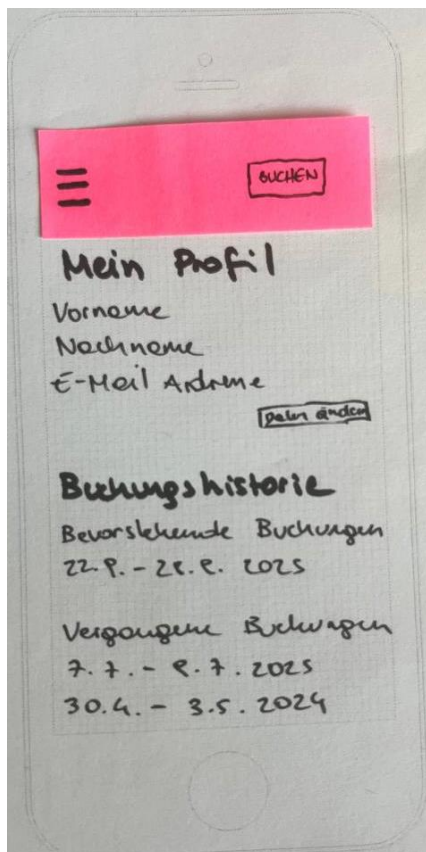 BUCHEN
Mein Profil
Vorname
Nachname
E-Mail Adresse
Daten ändern
Buchungshistorie
Bevorstehende Buchungen
2025
Vergangene Buchungen
7.7. - 2025
30.4. - 3.5. 2024